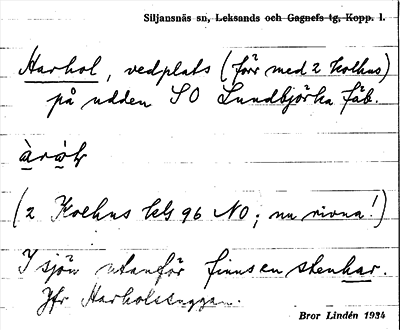 Siljansnäs sn, Leksands och Gagnefs tg, Kopp. l.
Harhol, vedplats (förr med 2 kolhus)
på udden SO Lundbjörka fäb.
(2 Kolhus kls 96 NO; nu rivna!)
I sjön utanför finns en stenhar.
Jfr Harholssuggan.
Bror Lindén 1934